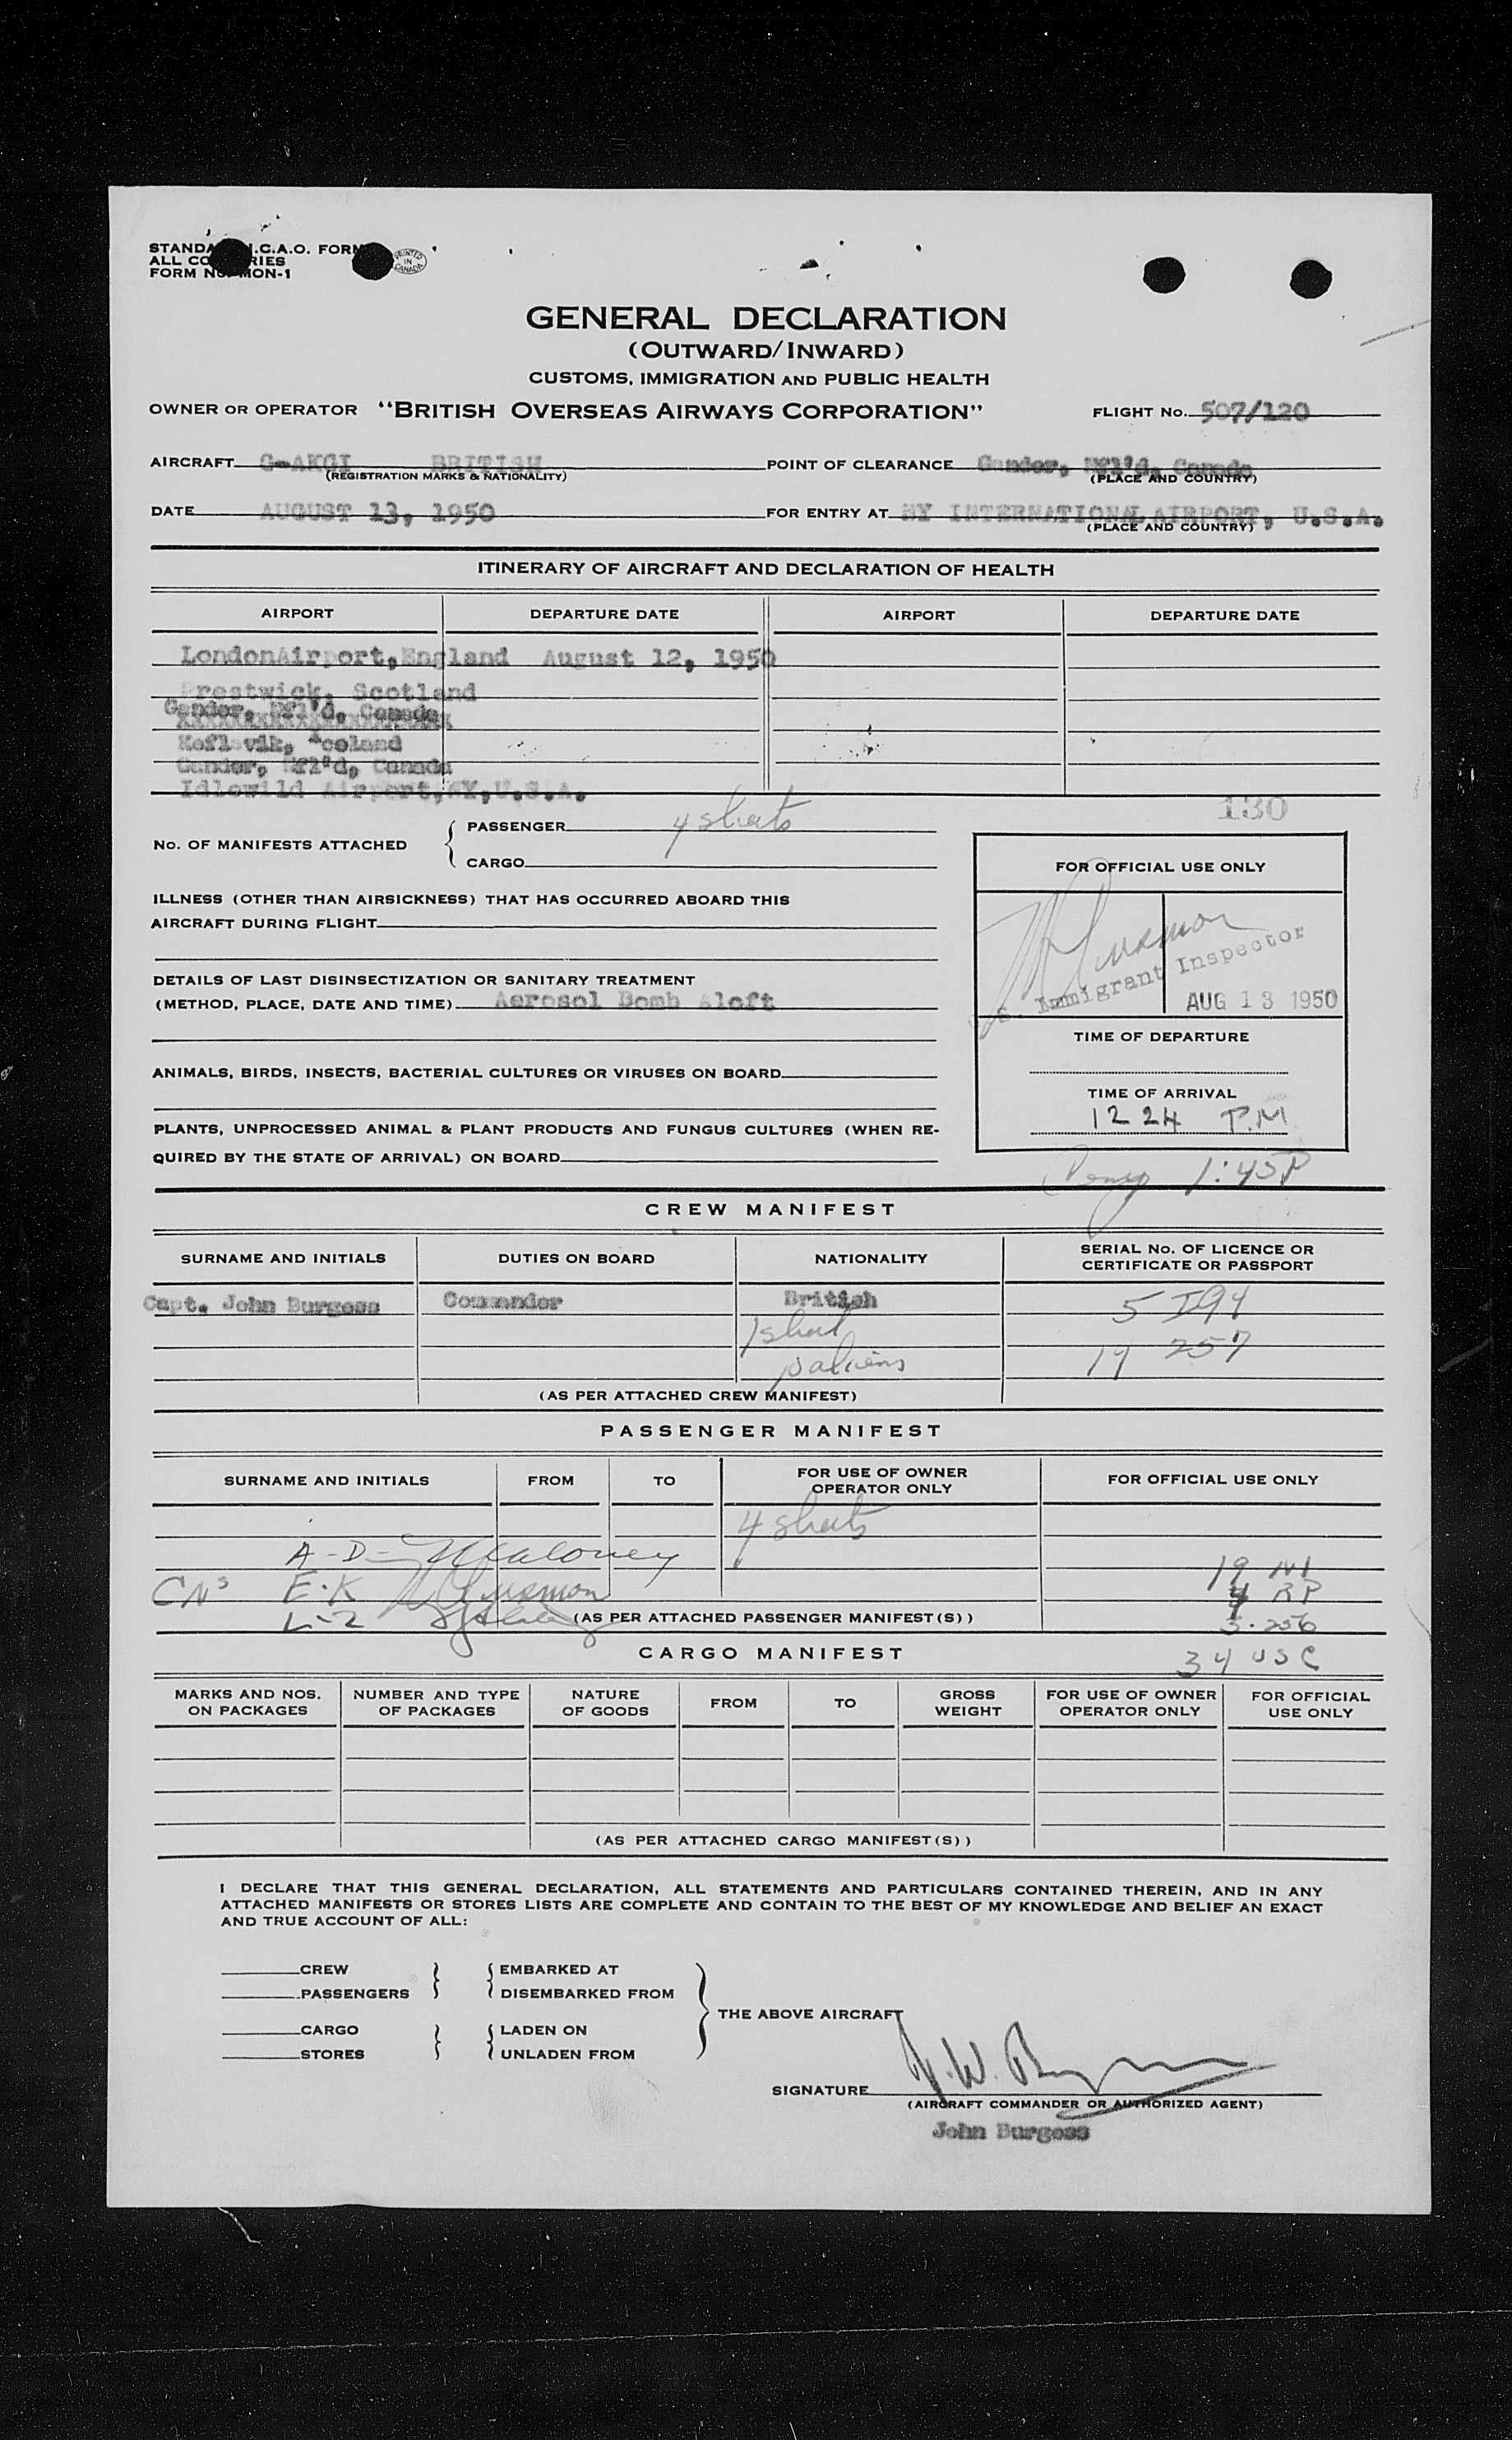 STANDA I.C.A.O. FORM
ALL CO RIES
FORM NO. MON-1
PRINTED IN CANADA
GENERAL DECLARATION
(OUTWARD/INWARD)
CUSTOMS, IMMIGRATION AND PUBLIC HEALTH
OWNER OR OPERATOR "BRITISH OVERSEAS AIRWAYS CORPORATION" FLIGHT No. 507/120
AIRCRAFT G-AKGI BRITISH POINT OF CLEARANCE Gander, Nfl'd, Canada
(REGISTRATION MARKS & NATIONALITY) (PLACE AND COUNTRY)
DATE AUGUST 13, 1950 FOR ENTRY AT NY INTERNATIONAL AIRPORT, U.S.A.
(PLACE AND COUNTRY)
ITINERARY OF AIRCRAFT AND DECLARATION OF HEALTH
AIRPORT DEPARTURE DATE AIRPORT DEPARTURE DATE
LondonAirport,England August 12, 1950
Prestwick, Scotland
Gander, Nfl'd, Canada
Keflavik, Iceland
Gander, Nfl'd, Canada
Idlewild Airport,NY,U.S.A.
130
No. OF MANIFESTS ATTACHED { PASSENGER 4 sheets
CARGO
FOR OFFICIAL USE ONLY
ILLNESS (OTHER THAN AIRSICKNESS) THAT HAS OCCURRED ABOARD THIS
AIRCRAFT DURING FLIGHT
Immigrant Inspector
DETAILS OF LAST DISINSECTIZATION OR SANITARY TREATMENT
(METHOD, PLACE, DATE AND TIME) Aerosol Bomb Aloft
AUG 13 1950
TIME OF DEPARTURE
ANIMALS, BIRDS, INSECTS, BACTERIAL CULTURES OR VIRUSES ON BOARD
TIME OF ARRIVAL
12 24 P.M
PLANTS, UNPROCESSED ANIMAL & PLANT PRODUCTS AND FUNGUS CULTURES (WHEN RE-
QUIRED BY THE STATE OF ARRIVAL) ON BOARD
1:45P
CREW MANIFEST
SURNAME AND INITIALS DUTIES ON BOARD NATIONALITY SERIAL No. OF LICENCE OR
CERTIFICATE OR PASSPORT
Capt. John Burgess Commander British 5 I94
1 sheet
257
(AS PER ATTACHED CREW MANIFEST)
PASSENGER MANIFEST
SURNAME AND INITIALS FROM TO FOR USE OF OWNER
OPERATOR ONLY FOR OFFICIAL USE ONLY
4 sheets
A-D- Maloney
19 NI
CNs E-K
4 RP
L-Z (AS PER ATTACHED PASSENGER MANIFEST(S))
3-256
CARGO MANIFEST
34 USC
MARKS AND NOS.
ON PACKAGES NUMBER AND TYPE
OF PACKAGES NATURE
OF GOODS FROM TO GROSS
WEIGHT FOR USE OF OWNER
OPERATOR ONLY FOR OFFICIAL
USE ONLY
(AS PER ATTACHED CARGO MANIFEST(S))
I DECLARE THAT THIS GENERAL DECLARATION, ALL STATEMENTS AND PARTICULARS CONTAINED THEREIN, AND IN ANY
ATTACHED MANIFESTS OR STORES LISTS ARE COMPLETE AND CONTAIN TO THE BEST OF MY KNOWLEDGE AND BELIEF AN EXACT
AND TRUE ACCOUNT OF ALL:
CREW EMBARKED AT
PASSENGERS DISEMBARKED FROM
THE ABOVE AIRCRAFT
CARGO LADEN ON
STORES UNLADEN FROM
SIGNATURE
(AIRCRAFT COMMANDER OR AUTHORIZED AGENT)
John Burgess